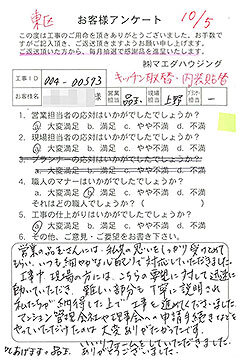 東区
お客様アンケート 10/5
この度は工事のご用命を頂きありがとうございました。お手数で
すがご記入頂き、ご返送頂きますようお願い申し上げます。
ご返送頂いた方から、毎月抽選で感謝品を進呈いたします。
㈱マエダハウジング
工事ID 004-00593 キッチン取替・内装貼替
お客様名 様 営業担当 品玉 現場担当 上野
1. 営業担当者の応対はいかがでしたでしょうか？
a. 大変満足 b. 満足 c. やや不満 d. 不満
2. 現場担当者の応対はいかがでしたでしょうか？
a. 大変満足 b. 満足 c. やや不満 d. 不満
3. プランナーの応対はいかがでしたでしょうか？
a. 大変満足 b. 満足 c. やや不満 d. 不満
4. 職人のマナーはいかがでしたでしょうか？
a. 大変満足 b. 満足 c. やや不満 d. 不満
それはどの職人でしょうか？( )
5. 工事の仕上がりはいかがでしたでしょうか？
a. 大変満足 b. 満足 c. やや不満 d. 不満
6. その他、ご意見・ご要望をお書き下さい。
営業の品玉さんには、私共の思いをしっかり受けとめて
もらい、いつも細やかな心配りで対応していただきました。
工事中、現場の方には、こちらの要望に対して迅速に
動いていただき、難しい部分も丁寧に説明され
私たちが"納得した上で"工事を進めてくださいました。
マンション管理会社や理事会への申請手続きなどを
やっていただけたのは大変ありがたかったです。
いいリフォームをしていただきました。
ありがとうございました。